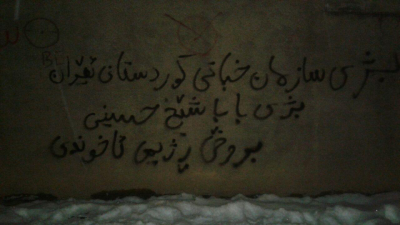 بژی سازمان خباتی کوردستانی ئێران
بژی بابا شێخ حسینی
بروخێ رژیمی ئاخوندی